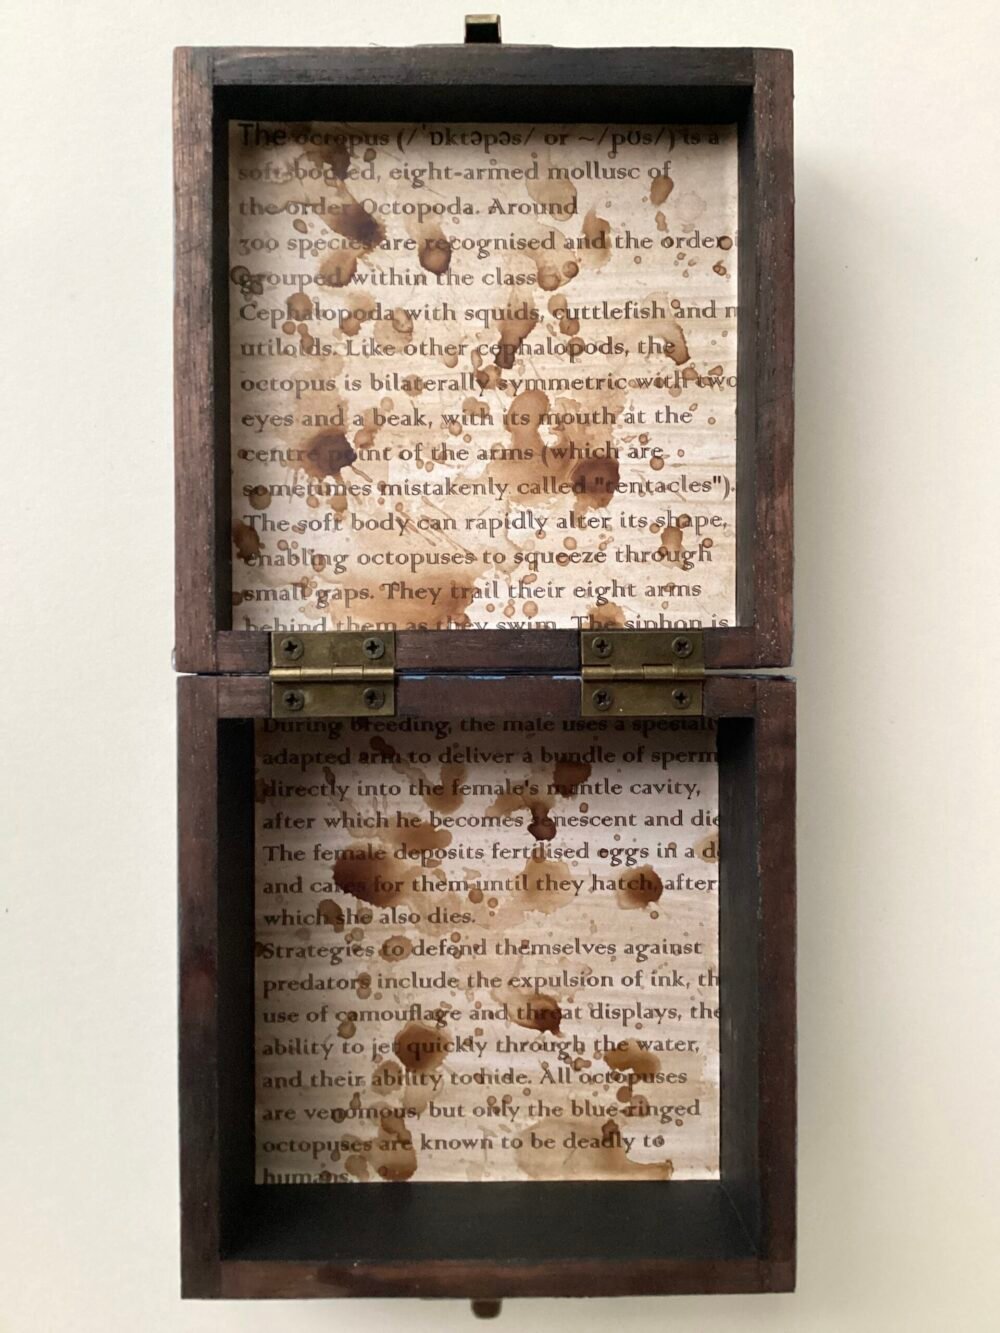 The octopus (/ˈɒktəpəs/ or ~/pʊs/) is a
soft-bodied, eight-armed mollusc of
the order Octopoda. Around
300 species are recognised and the order
grouped within the class
Cephalopoda with squids, cuttlefish and n
utiloids. Like other cephalopods, the
octopus is bilaterally symmetric with two
eyes and a beak, with its mouth at the
centre point of the arms (which are
sometimes mistakenly called "tentacles").
The soft body can rapidly alter its shape,
enabling octopuses to squeeze through
small gaps. They trail their eight arms
behind them as they swim. The siphon is
During breeding, the male uses a specially
adapted arm to deliver a bundle of sperm
directly into the female's mantle cavity,
after which he becomes senescent and die
The female deposits fertilised eggs in a d
and cares for them until they hatch, after
which she also dies.
Strategies to defend themselves against
predators include the expulsion of ink, th
use of camouflage and threat displays, the
ability to jet quickly through the water,
and their ability to hide. All octopuses
are venomous, but only the blue-ringed
octopuses are known to be deadly to
humans.